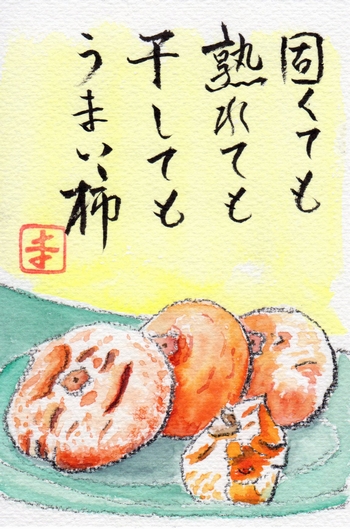 固くても
熟れても
干しても
うまい柿